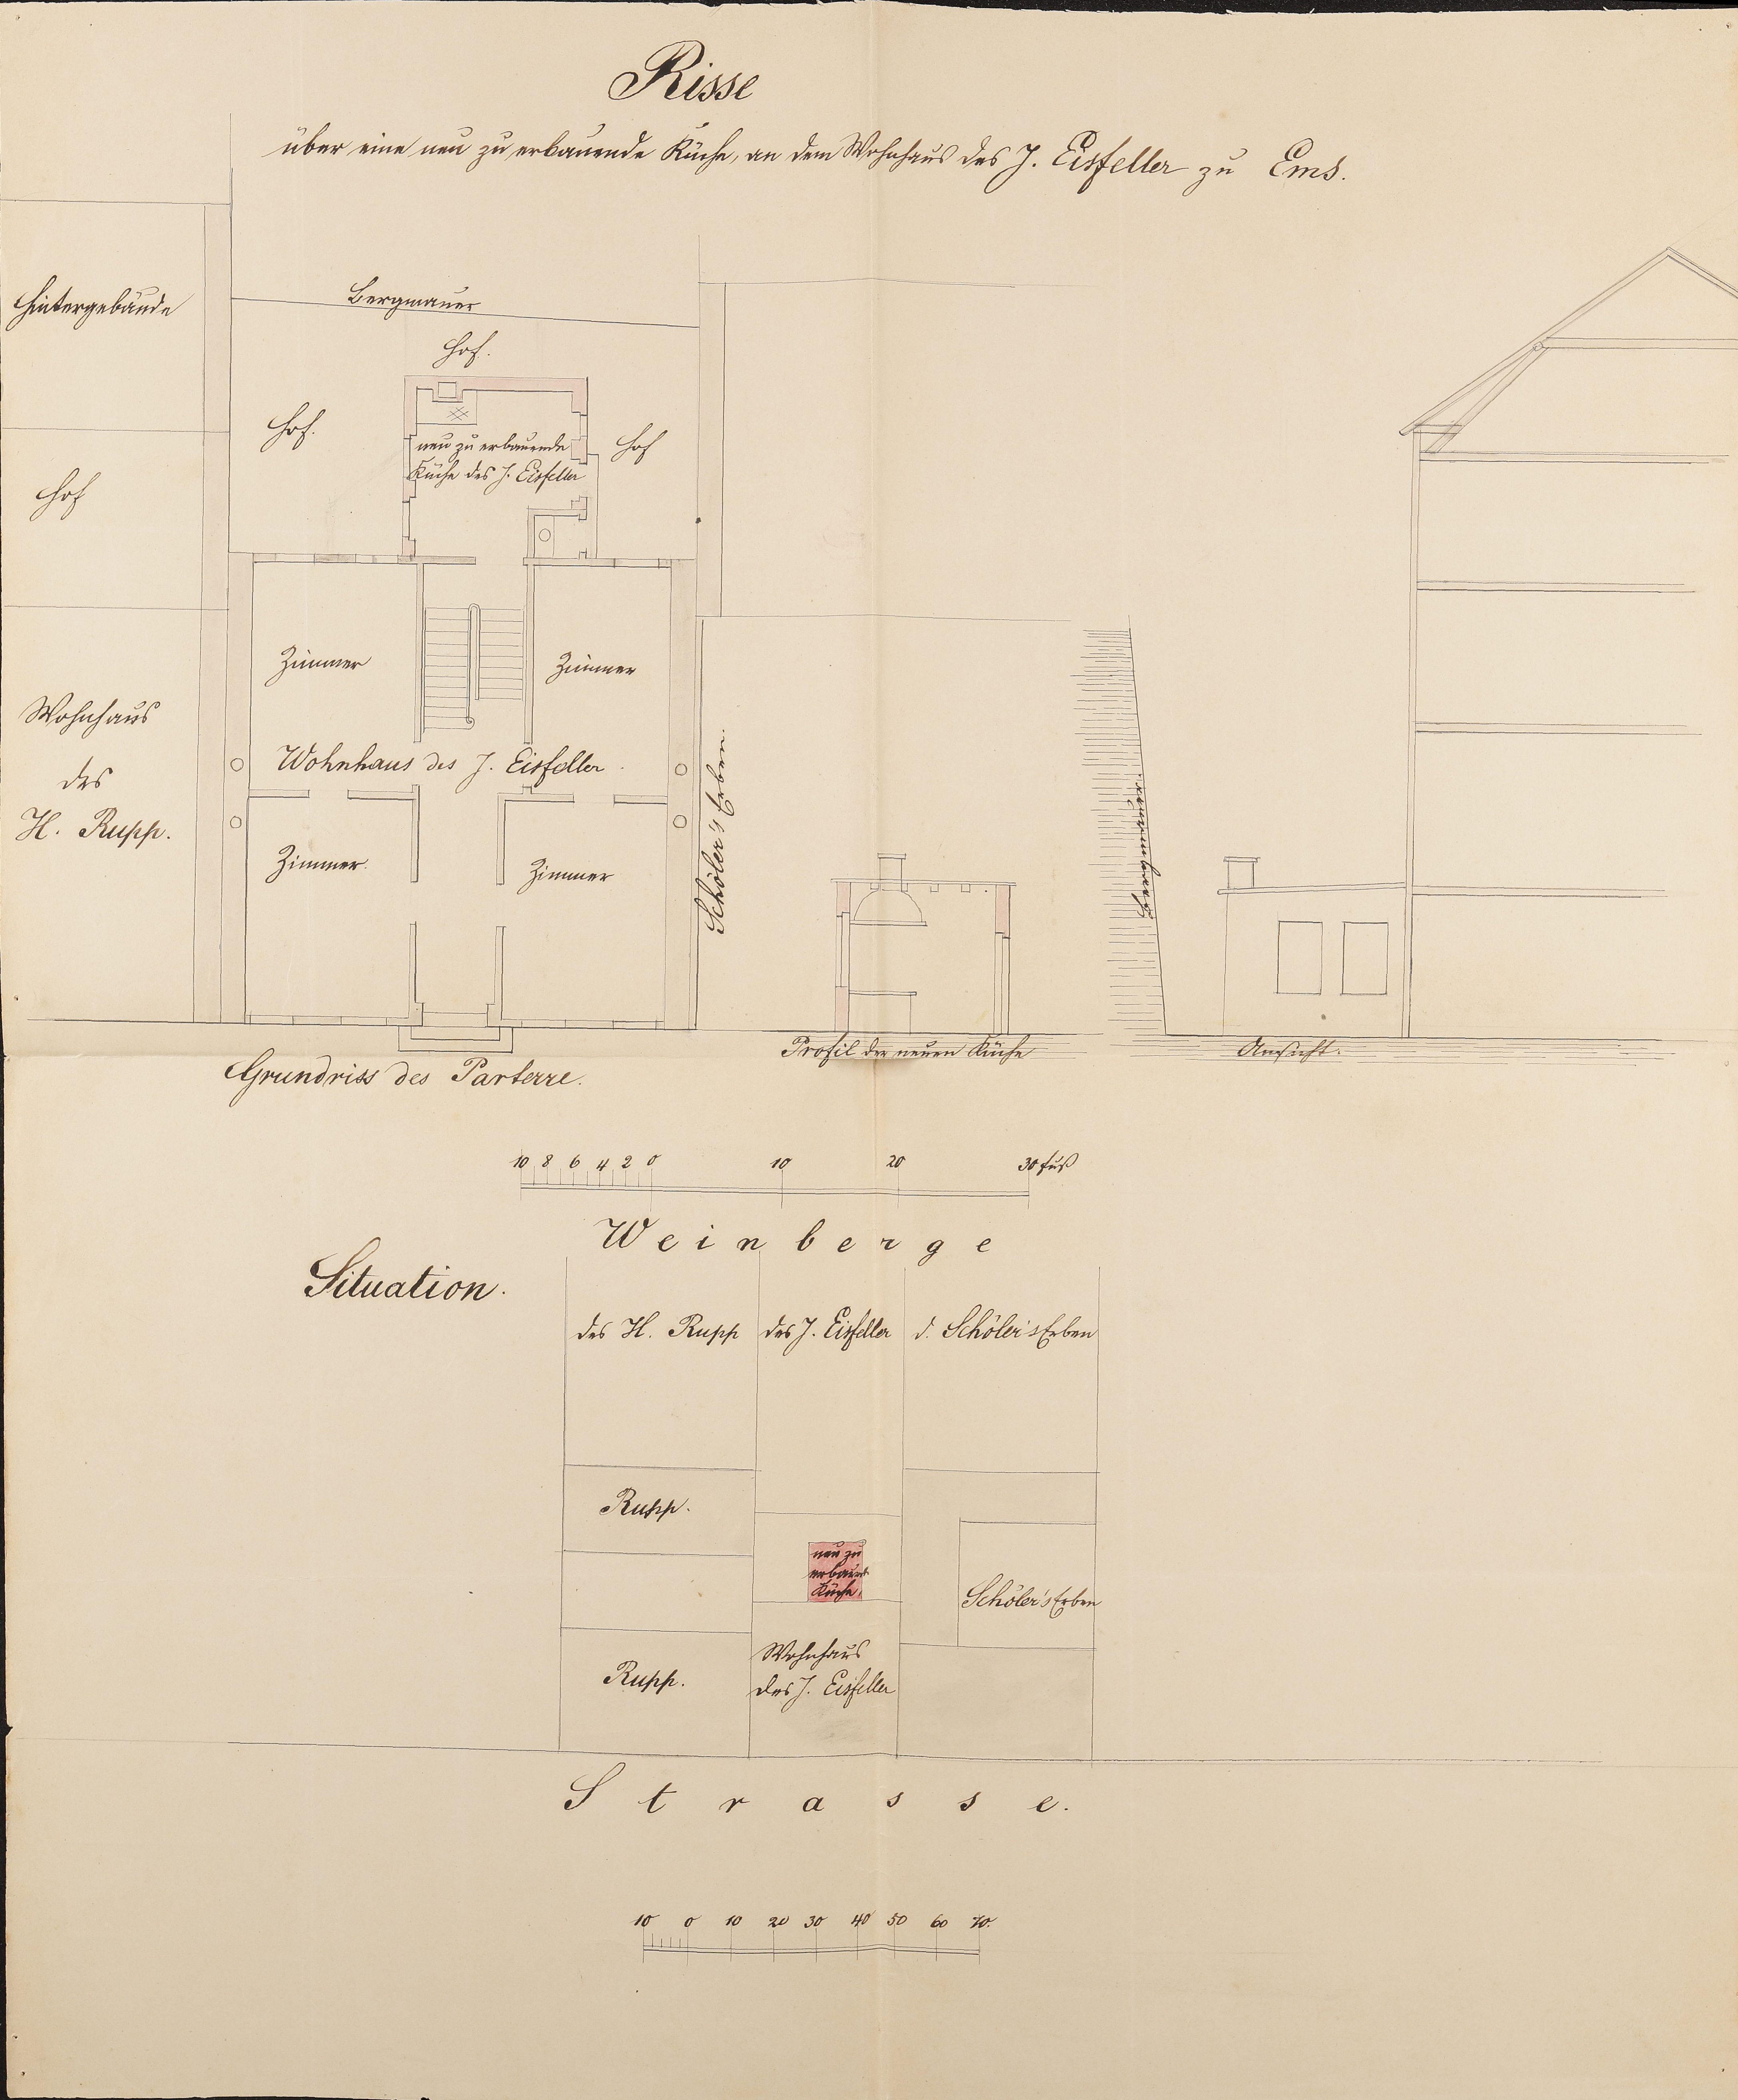 Risse
über eine neu zu erbauende Küche, an dem Wohnhaus des J. Eisfeller zu Ems.
Hintergebäude
Bergmauer
Hof.
Hof.
Hof
neu zu erbauende
Küche des J. Eisfeller
Hof
Zimmer
Zimmer
Wohnhaus
des
H. Rupp.
Wohnhaus des J. Eisfeller.
Schöler's Erben.
Bergmauer.
Zimmer.
Zimmer
Profil der neuen Küche
Ansicht.
Grundriss des Parterre.
10 8 6 4 2 0 10 20 30 Fuß
Weinberge
Situation.
des H. Rupp
des J. Eisfeller
d. Schöler's Erben
Rupp.
neu zu
erbauende
Küche.
Schöler's Erben
Rupp.
Wohnhaus
des J. Eisfeller
Strasse.
10 0 10 20 30 40 50 60 70.